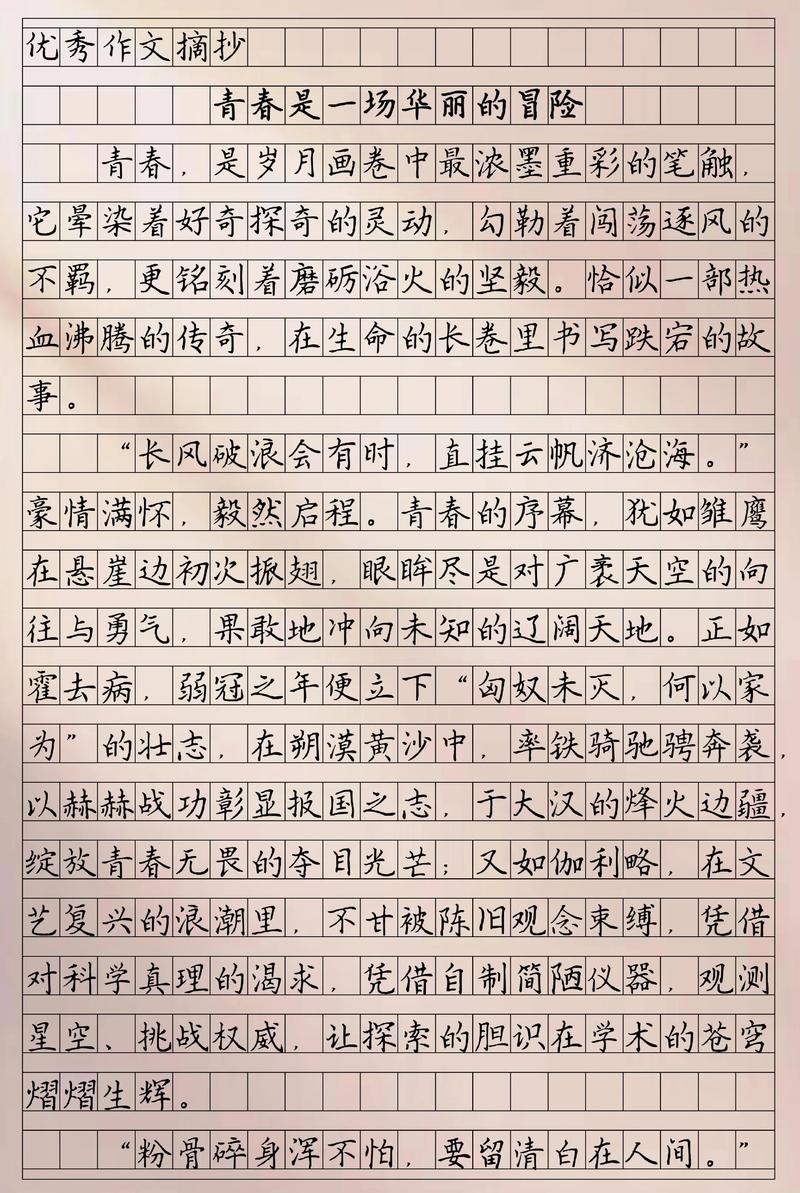 优秀作文摘抄
青春是一场华丽的冒险
青春，是岁月画卷中最浓墨重彩的笔触，
它晕染着好奇探奇的灵动，勾勒着闯荡逐风的
不羁，更铭刻着磨砺浴火的坚毅。恰似一部热
血沸腾的传奇，在生命的长卷里书写跌宕的故
事。
“长风破浪会有时，直挂云帆济沧海。”
豪情满怀，毅然启程。青春的序幕，犹如雏鹰
在悬崖边初次振翅，眼眸尽是对广袤天空的向
往与勇气，果敢地冲向未知的辽阔天地。正如
霍去病，弱冠之年便立下“匈奴未灭，何以家
为”的壮志，在朔漠黄沙中，率铁骑驰骋奔袭，
以赫赫战功彰显报国之志，于大汉的烽火边疆，
绽放青春无畏的夺目光芒；又如伽利略，在文
艺复兴的浪潮里，不甘被陈旧观念束缚，凭借
对科学真理的渴求，凭借自制简陋仪器，观测
星空、挑战权威，让探索的胆识在学术的苍穹
熠熠生辉。
“粉骨碎身浑不怕，要留清白在人间。”